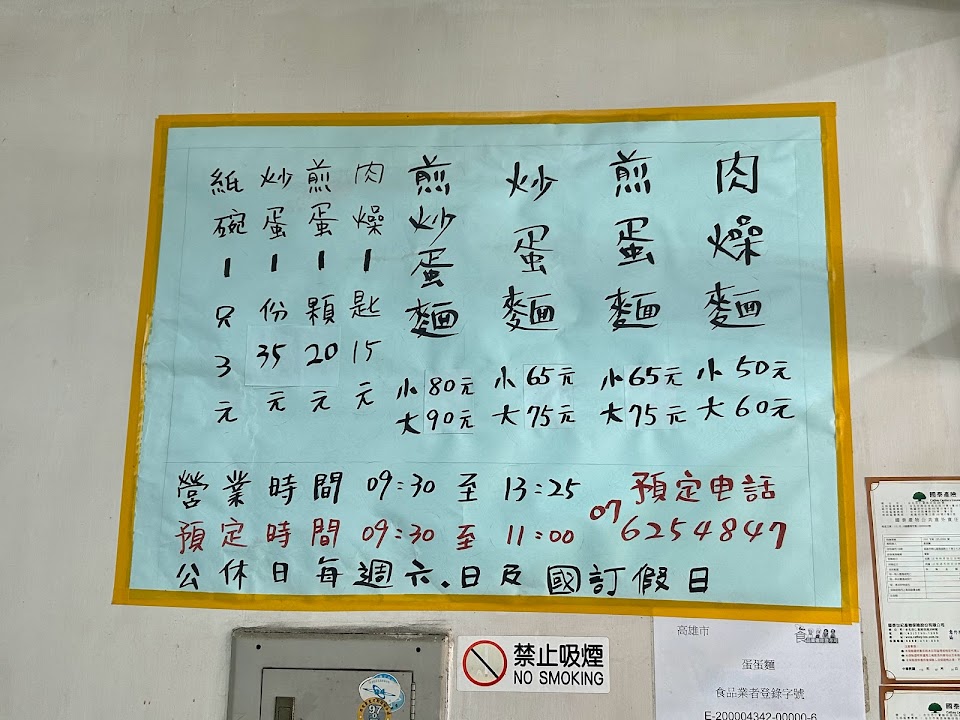 肉燥麵 小50元 大60元
煎蛋麵 小65元 大75元
炒蛋麵 小65元 大75元
煎炒蛋麵 小80元 大90元
肉燥1匙15元
煎蛋1顆20元
炒蛋1份35元
紙碗1只3元
營業時間 09:30 至 13:25
預定時間 09:30 至 11:00
預定电話
07 6254847
公休日每週六.日及國訂假日
禁止吸煙
NO SMOKING
高雄市
蛋蛋麵
食品業者登錄字號
E-200004342-00000-6
國泰產險
97